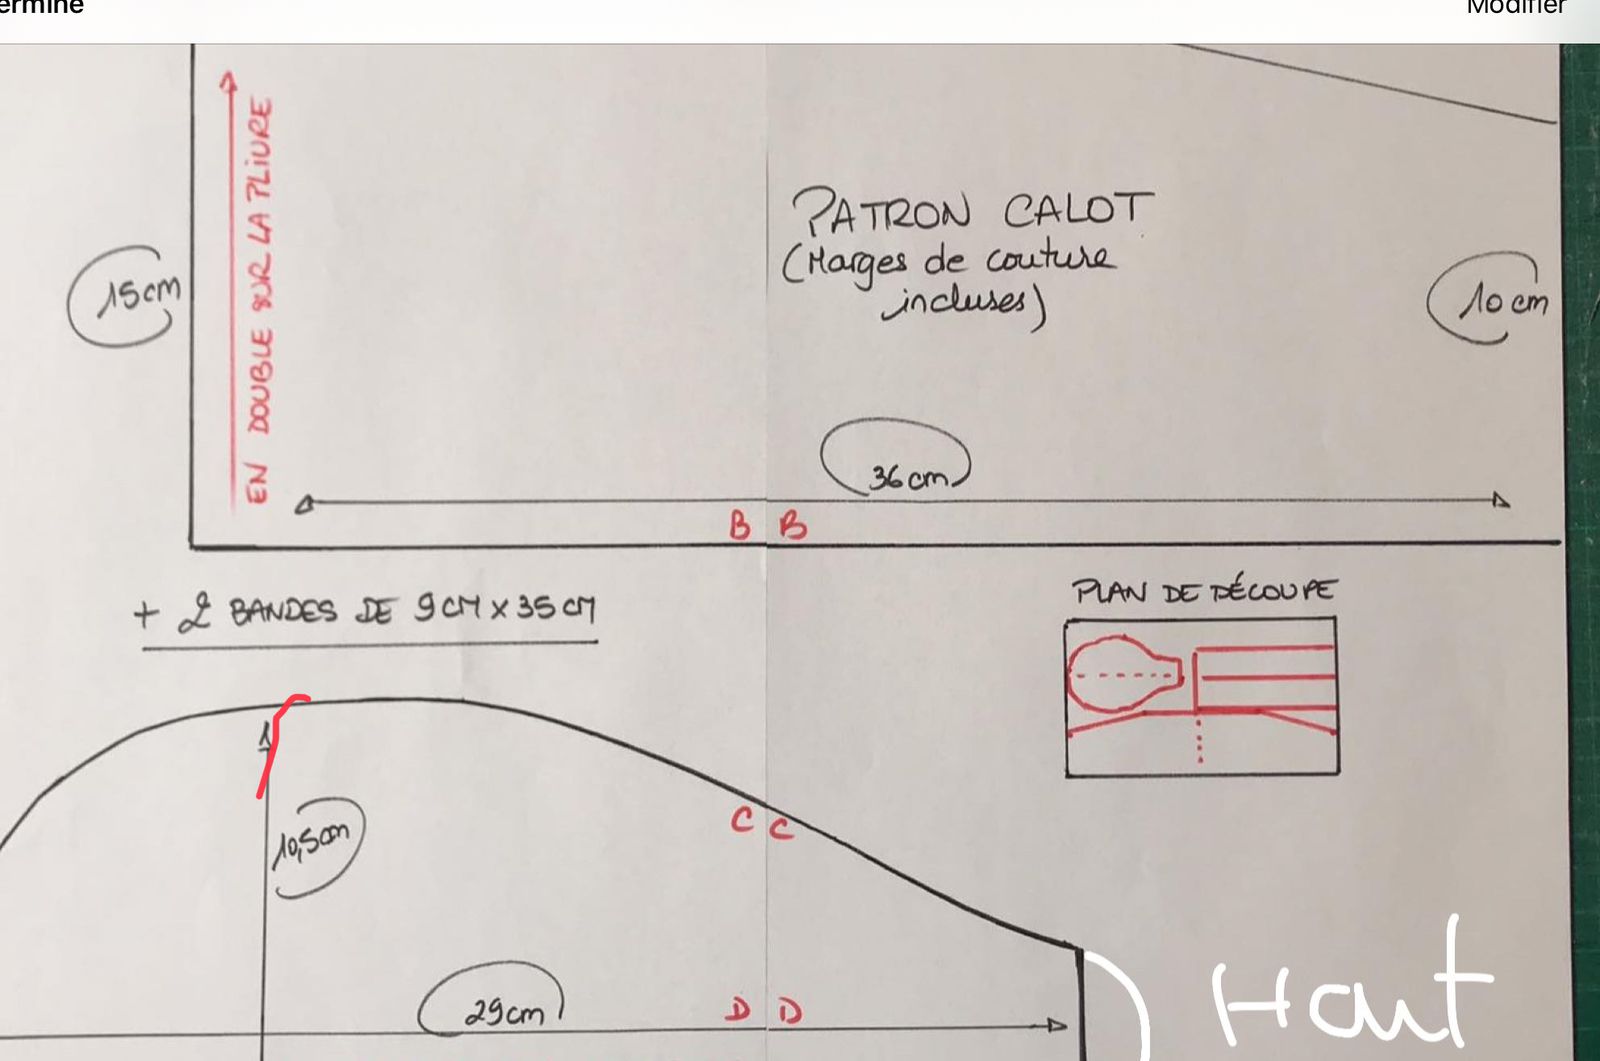 ermine
Modifier
EN DOUBLE SUR LA PLIURE
15cm
PATRON CALOT
(Marges de couture
incluses)
10 cm
36cm
B B
+ 2 BANDES DE 9CM X 35CM
PLAN DE DÉCOUPE
10,5cm
C C
29cm
D D
Haut